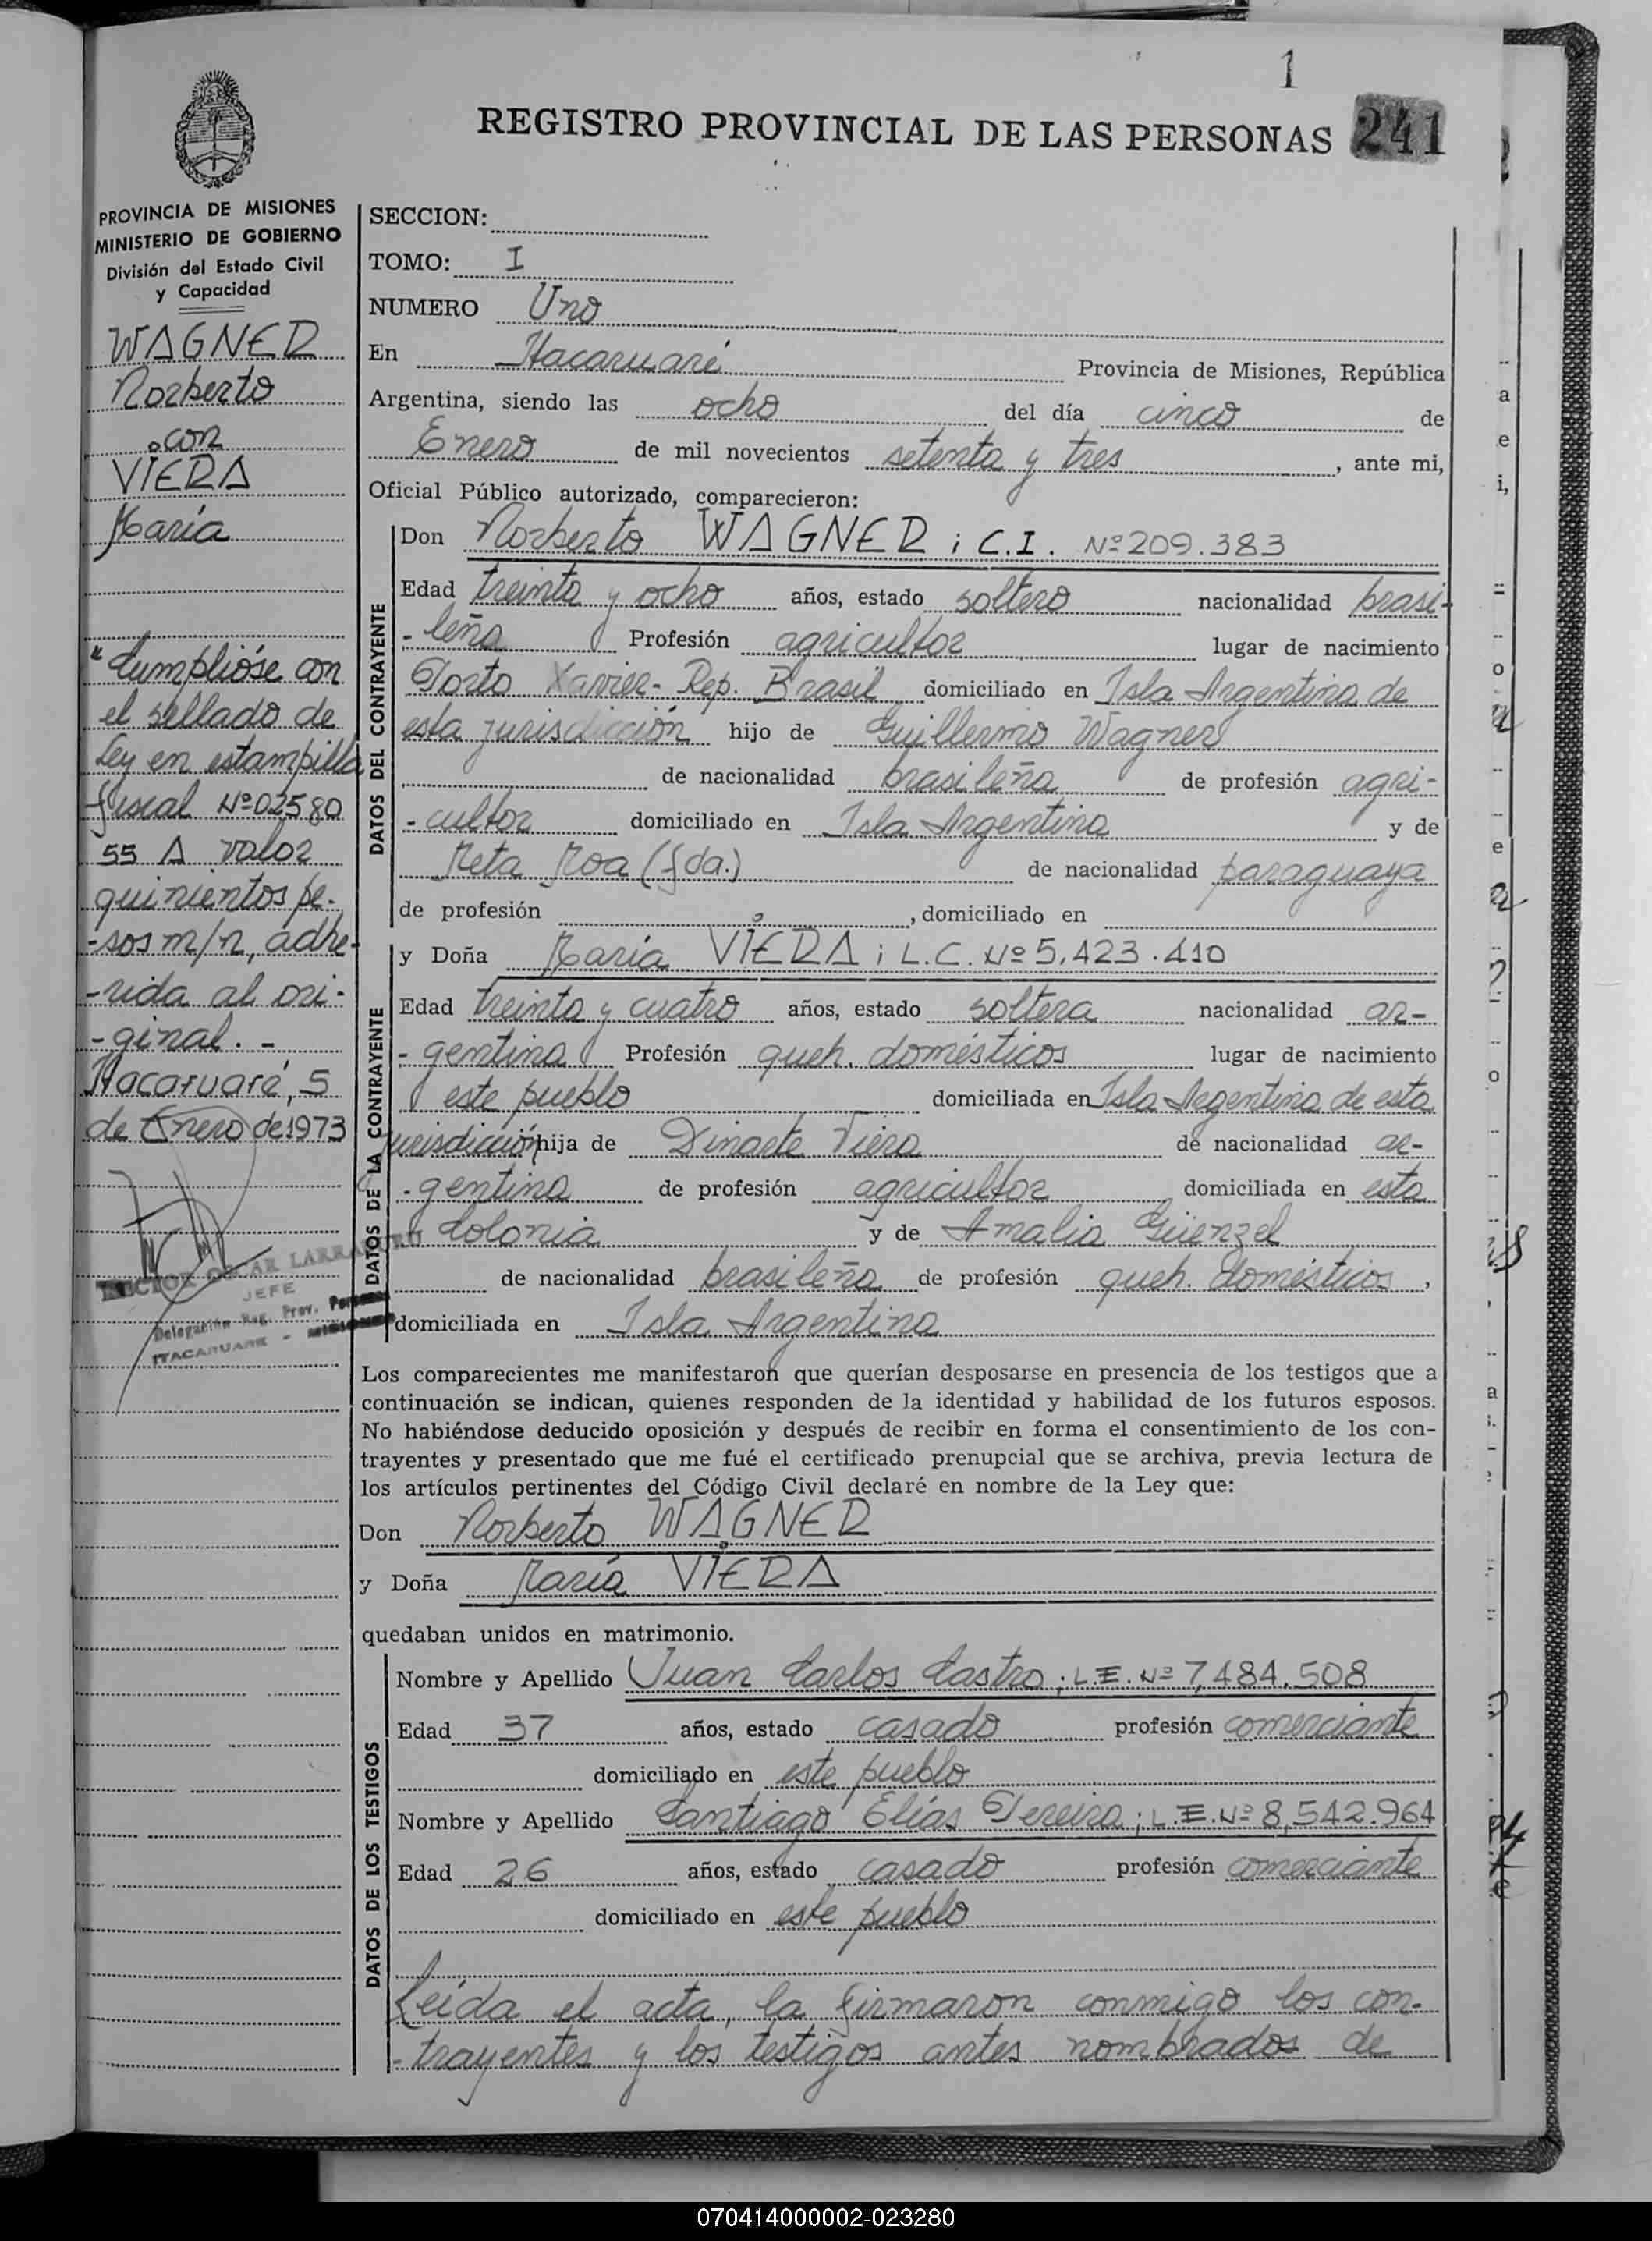 1
REGISTRO PROVINCIAL DE LAS PERSONAS 241
PROVINCIA DE MISIONES
MINISTERIO DE GOBIERNO
División del Estado Civil
y Capacidad
WAGNER
Norberto
con
VIERA
María
"Cumplióse con
el sellado de
Ley en estampilla
fiscal Nº 02580
55 A valor
quinientos pe-
-sos m/n, adhe-
-rida al ori-
-ginal.-
Itacaruaré, 5
de Enero de 1973
HECTOR OSCAR LARRABURU
JEFE
Delegación Reg. Prov. Personas
ITACARUARE - MISIONES
SECCION:
TOMO: I
NUMERO Uno
En Itacaruaré Provincia de Misiones, República
Argentina, siendo las ocho del día cinco de
Enero de mil novecientos setenta y tres, ante mi,
Oficial Público autorizado, comparecieron:
DATOS DEL CONTRAYENTE
Don Norberto WAGNER; C.I. Nº 209.383
Edad treinta y ocho años, estado soltero nacionalidad brasi-
-leña Profesión agricultor lugar de nacimiento
Porto Xavier - Rep. Brasil domiciliado en Isla Argentina de
esta jurisdicción hijo de Guillermo Wagner
de nacionalidad brasileña de profesión agri-
-cultor domiciliado en Isla Argentina y de
Reta Roa (fda.) de nacionalidad paraguaya
de profesión , domiciliado en
DATOS DE LA CONTRAYENTE
y Doña María VIERA; L.C. Nº 5.423.410
Edad treinta y cuatro años, estado soltera nacionalidad ar-
-gentina Profesión queh. domésticos lugar de nacimiento
este pueblo domiciliada en Isla Argentina de esta
jurisdicción hija de Dinarte Viera de nacionalidad ar-
-gentina de profesión agricultor domiciliada en esta
Colonia y de Amalia Güenzel
de nacionalidad brasileña de profesión queh. domésticos,
domiciliada en Isla Argentina
Los comparecientes me manifestaron que querían desposarse en presencia de los testigos que a
continuación se indican, quienes responden de la identidad y habilidad de los futuros esposos.
No habiéndose deducido oposición y después de recibir en forma el consentimiento de los con-
trayentes y presentado que me fué el certificado prenupcial que se archiva, previa lectura de
los artículos pertinentes del Código Civil declaré en nombre de la Ley que:
Don Norberto WAGNER
y Doña María VIERA
quedaban unidos en matrimonio.
DATOS DE LOS TESTIGOS
Nombre y Apellido Juan Carlos Castro; L.E. Nº 7,484.508
Edad 37 años, estado casado profesión comerciante
domiciliado en este pueblo
Nombre y Apellido Santiago Elías Pereira; L.E. Nº 8,542.964
Edad 26 años, estado casado profesión comerciante
domiciliado en este pueblo
Leída el acta, la firmaron conmigo los con-
-trayentes y los testigos antes nombrados de
070414000002-023280